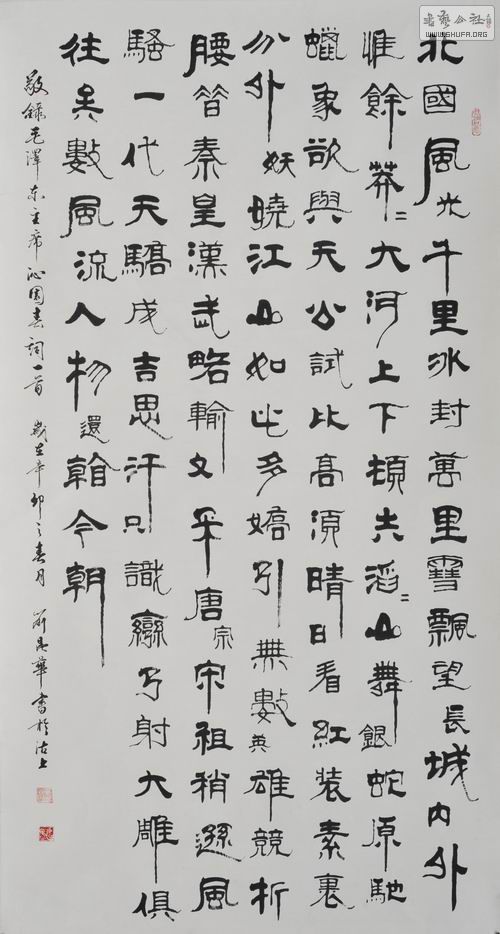 書藝公社
WWW.SHUFA.ORG
北國風光千里冰封萬里雪飄望長城內外
惟餘莽〻大河上下頓失滔〻山舞銀蛇原馳
蠟象欲與天公試比高須晴日看紅裝素裹
分外妖嬈江山如此多嬌引無數英雄競折
腰昔秦皇漢武略輸文采唐宗宋祖稍遜風
騷一代天驕成吉思汗只識彎弓射大雕俱
往矣數風流人物還看今朝
敬錄毛澤东主席沁園春詞一首 歲在辛卯之春月 華書於沽上